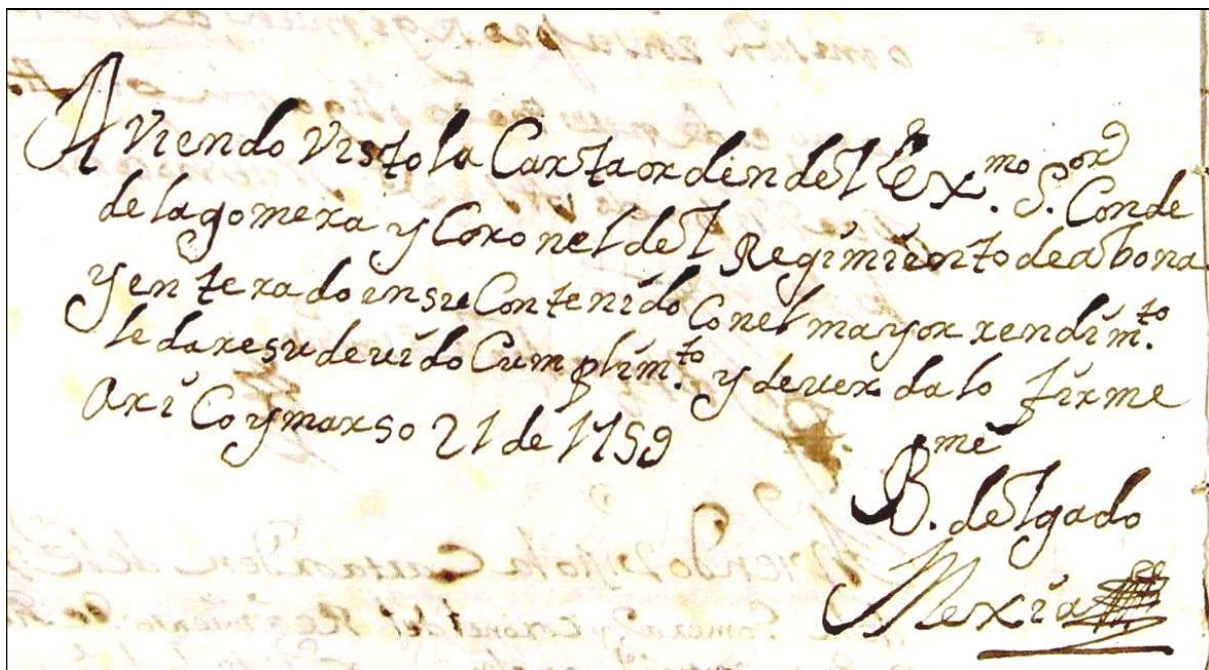 Aviendo Visto la Carta orden del Ex.mo S.or Conde
de la gomera y Coronel del Regimiento de abona
y enterado in su Contenido Con el mayor rendim.to
le dare su devido Cumplim.to y de ver da lo firme
Arico y marso 21 de 1759
B.me
delgado
Mexia